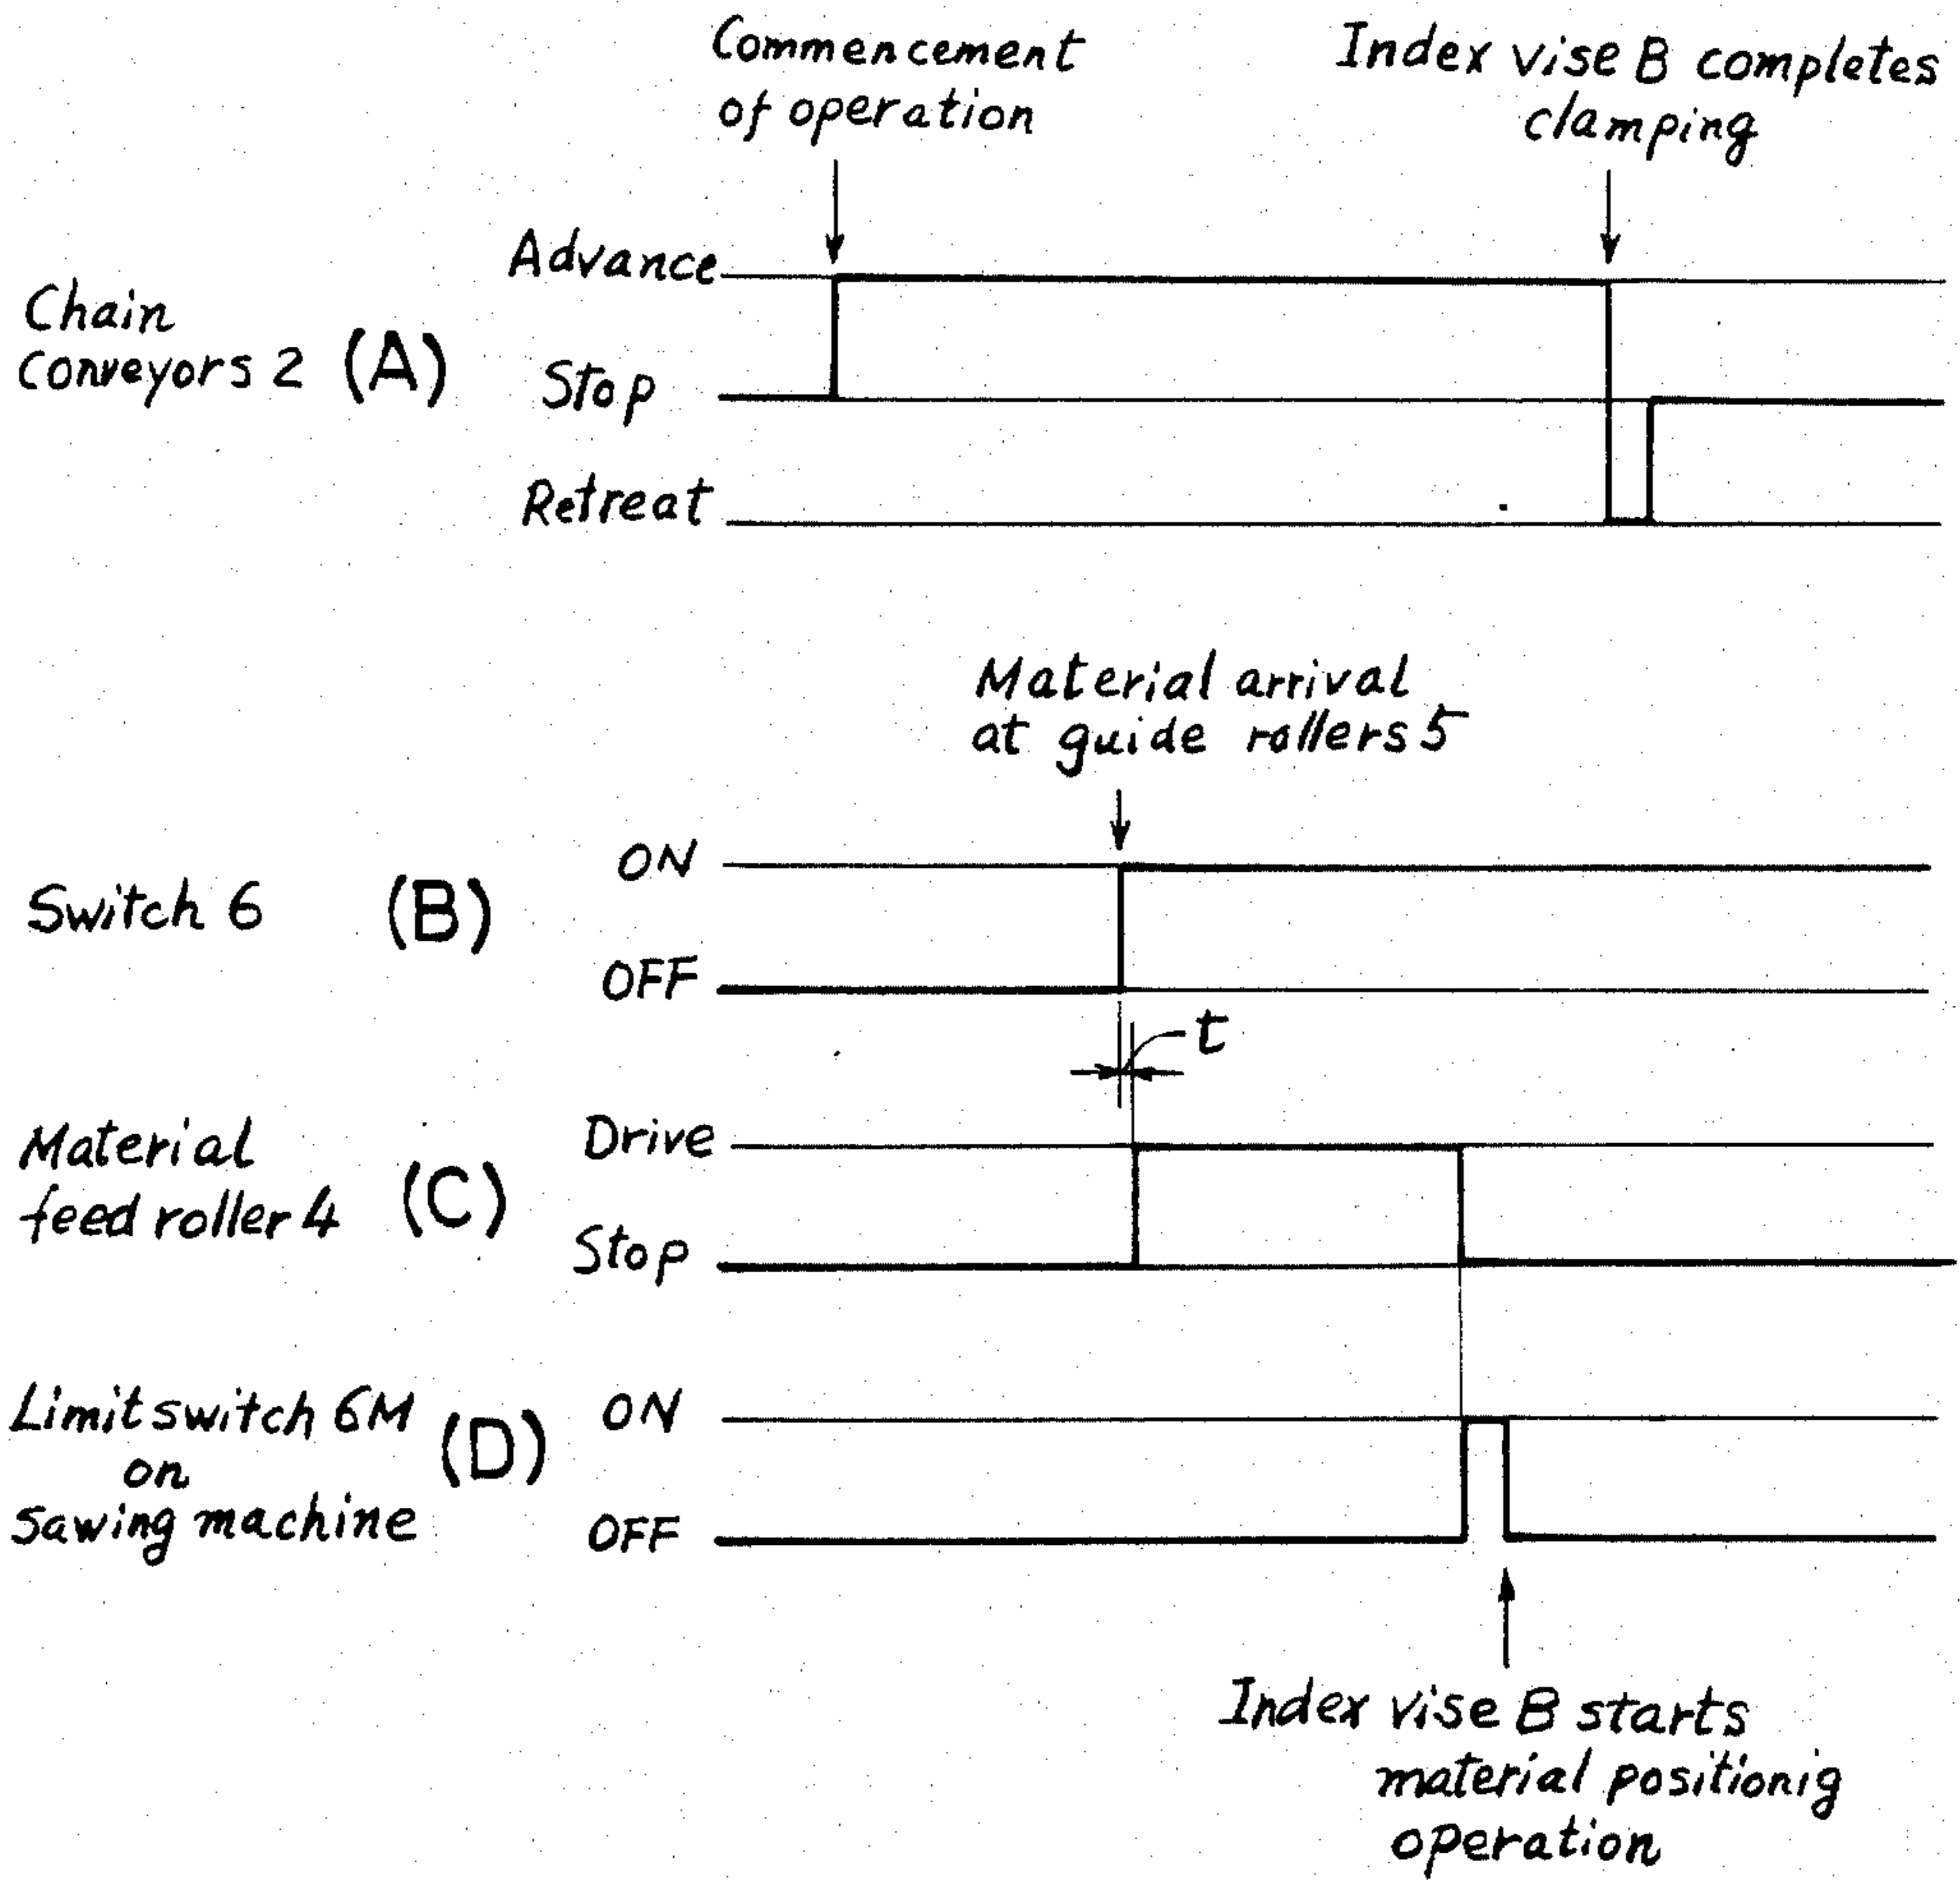 Commencement
of operation
Index vise B completes
clamping
Advance
Chain
conveyors 2 (A)
Stop
Retreat
Material arrival
at guide rollers 5
ON
Switch 6 (B)
OFF
t
Drive
Material
feed roller 4 (C)
Stop
Limit switch 6M
on
sawing machine
(D)
ON
OFF
Index vise B starts
material positionig
operation